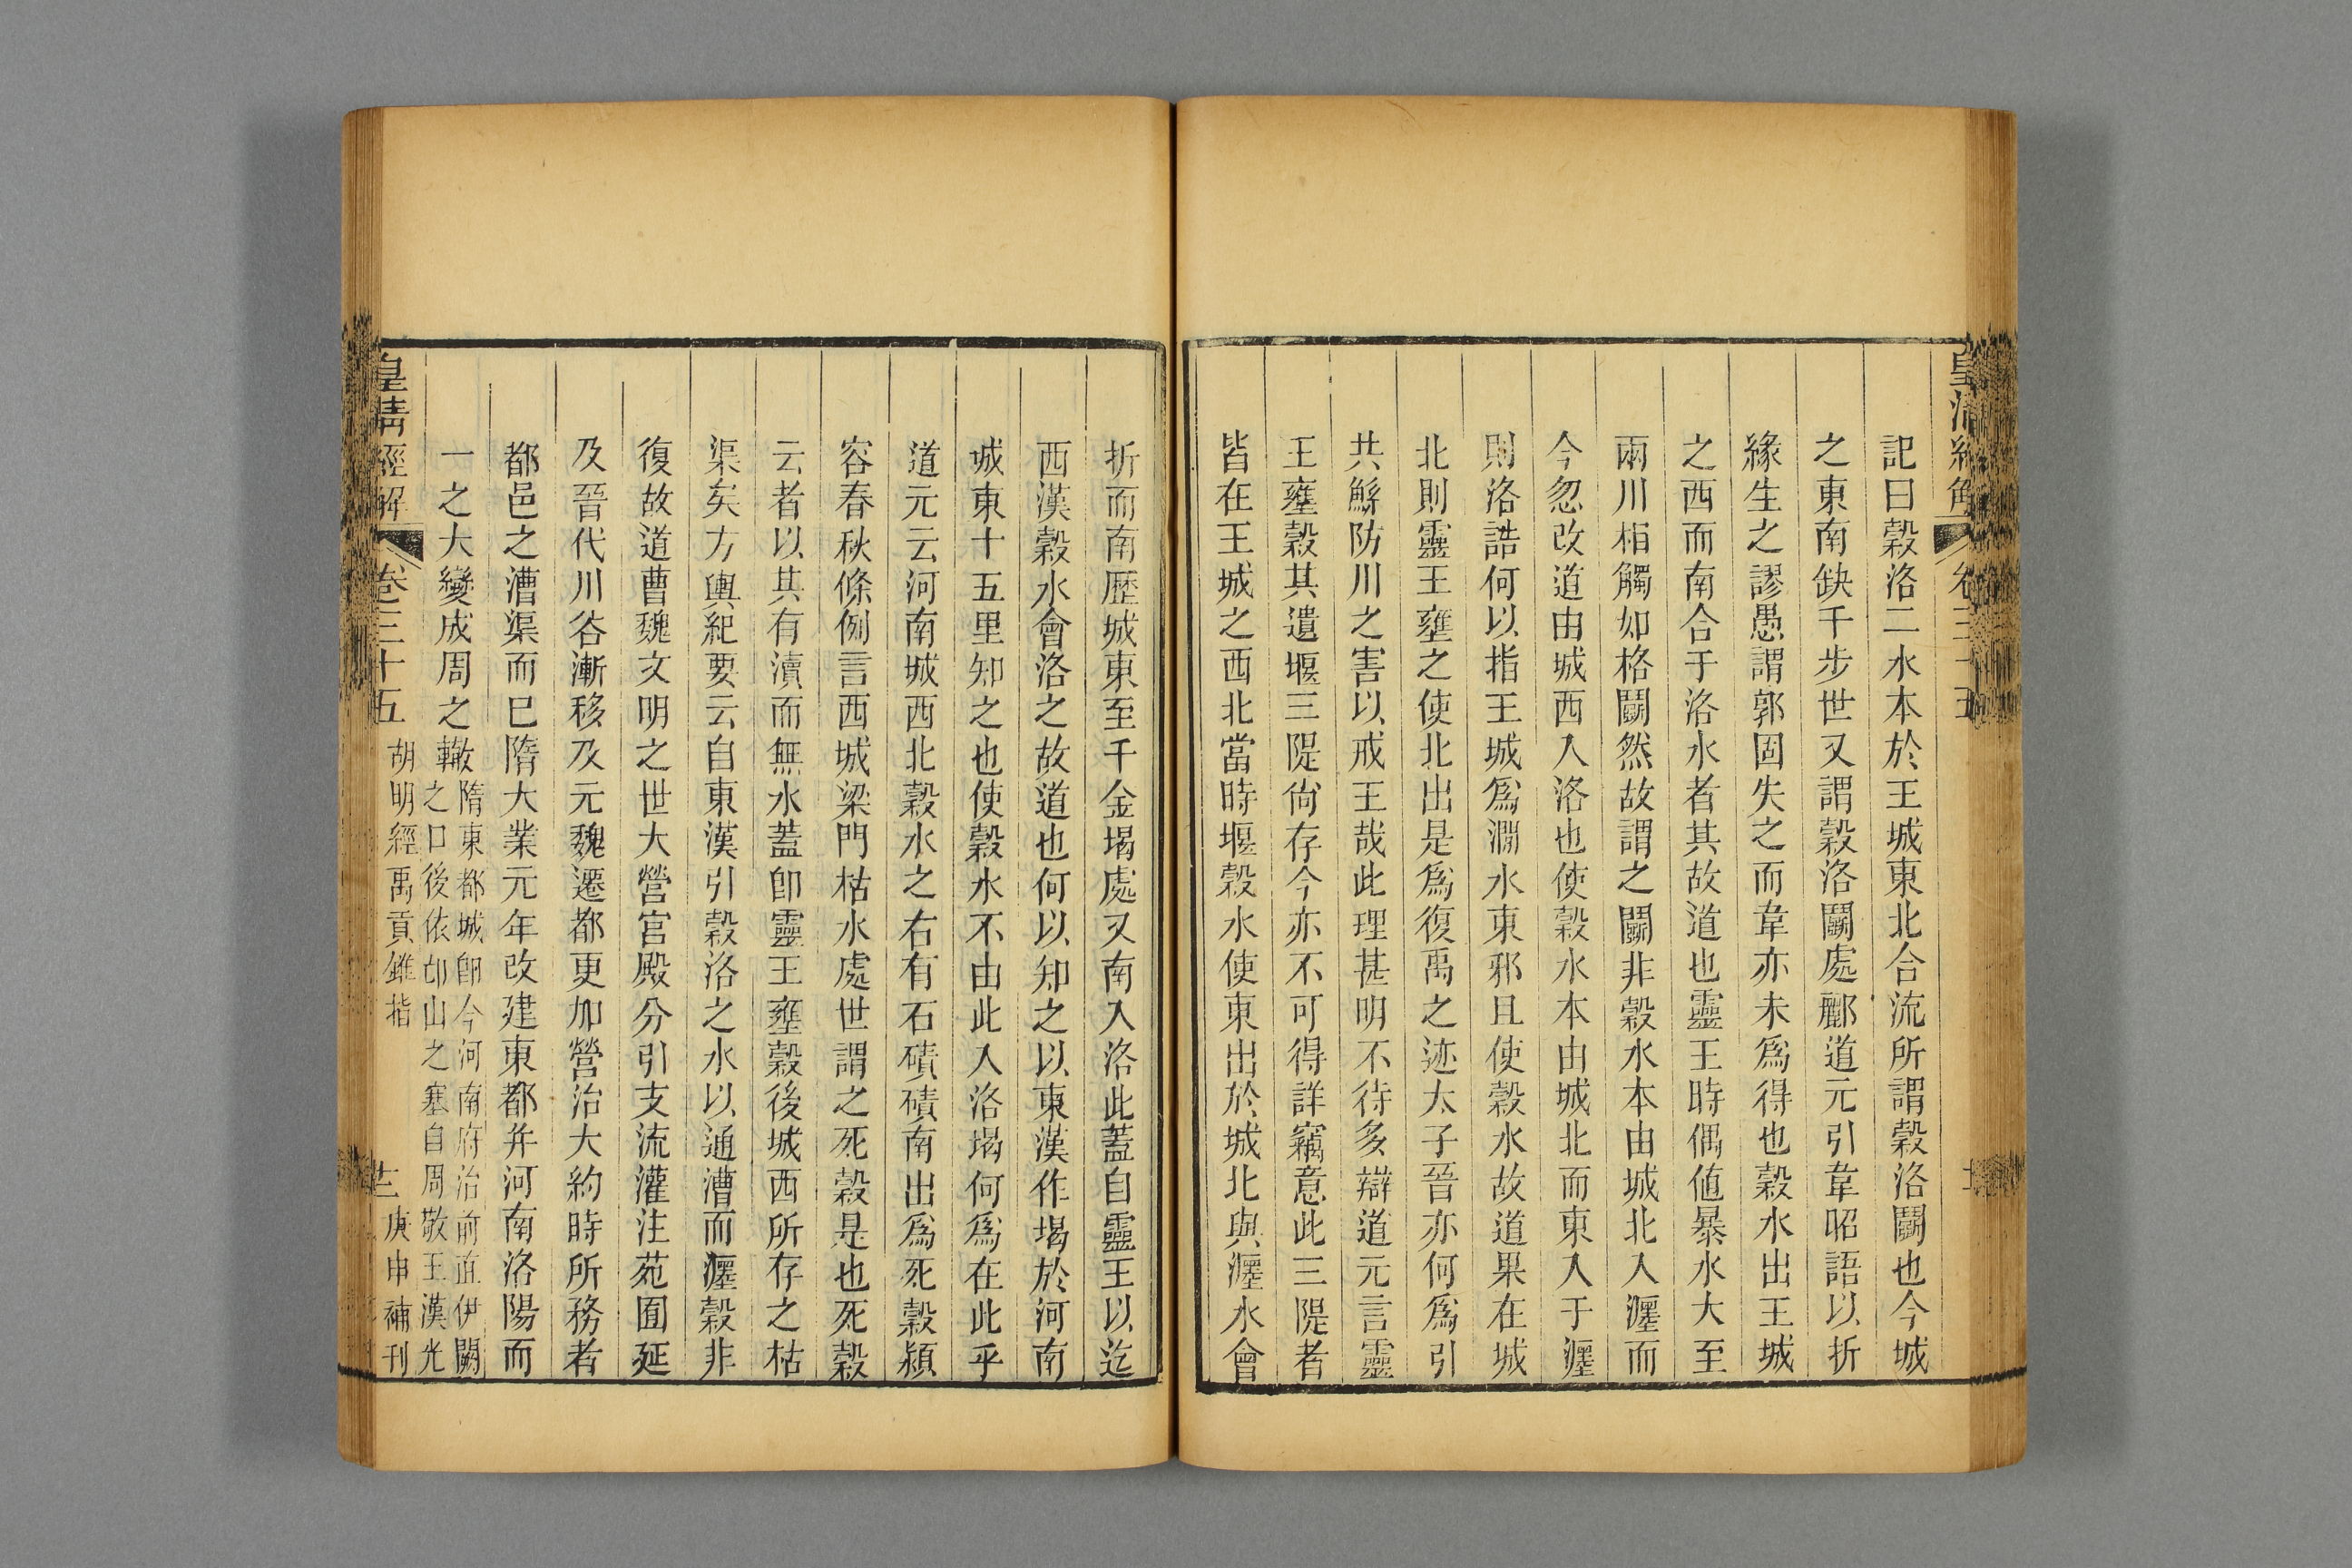 記曰穀洛二水本於王城東北合流所謂穀洛鬭也今城
之東南缺千步世又謂穀洛鬭處酈道元引韋昭語以折
緣生之謬愚謂郭固失之而韋亦未爲得也穀水出王城
之西而南合于洛水者其故道也靈王時偶値暴水大至
兩川相觸如格鬭然故謂之鬭非穀水本由城北入瀍而
今忽改道由城西入洛也使穀水本由城北而東入于瀍
則洛誥何以指王城爲澗水東邪且使穀水故道果在城
北則靈王壅之使北出是爲復禹之迹太子晉亦何爲引
共鯀防川之害以戒王哉此理甚明不待多辯道元言靈
王壅穀其遺堰三隄尙存今亦不可得詳竊意此三隄者
皆在王城之西北當時堰穀水使東出於城北與瀍水會
折而南歷城東至千金堨處又南入洛此蓋自靈王以迄
西漢穀水會洛之故道也何以知之以東漢作堨於河南
城東十五里知之也使穀水不由此入洛堨何爲在此乎
道元云河南城西北穀水之右有石磧磧南出爲死穀潁
容春秋條例言西城梁門枯水處世謂之死穀是也死穀
云者以其有瀆而無水蓋卽靈王壅穀後城西所存之枯
渠矣方輿紀要云自東漢引穀洛之水以通漕而瀍穀非
復故道曹魏文明之世大營宮殿分引支流灌注苑囿延
及晉代川谷漸移及元魏遷都更加營治大約時所務者
都邑之漕渠而已隋大業元年改建東都幷河南洛陽而
一之大變成周之轍
隋東都城卽今河南府治前直伊闕
之口後依邙山之塞自周敬王漢光
皇淸經解 卷三十五 胡明經禹貢錐指 庚申補刊